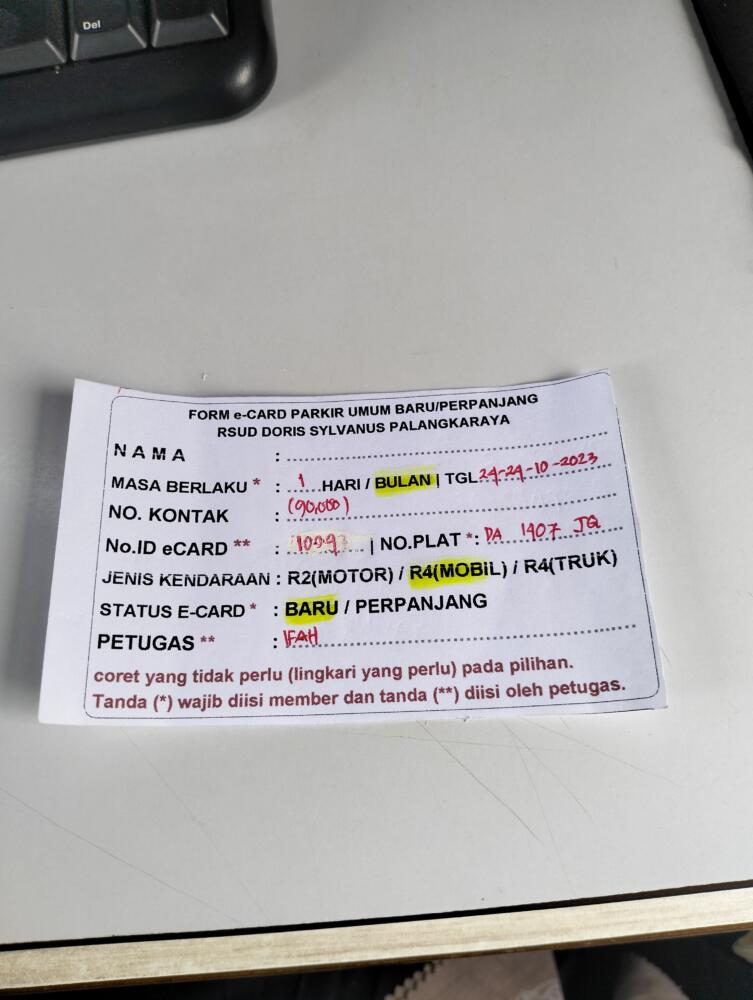 Del
FORM e-CARD PARKIR UMUM BARU/PERPANJANG
RSUD DORIS SYLVANUS PALANGKARAYA
N A M A :
MASA BERLAKU * : 1 HARI / BULAN | TGL 24-24-10-2023
NO. KONTAK : (90,000)
No.ID eCARD ** : | NO.PLAT *: DA 1907 JQ
JENIS KENDARAAN : R2(MOTOR) / R4(MOBIL) / R4(TRUK)
STATUS E-CARD * : BARU / PERPANJANG
PETUGAS ** : IFAH
coret yang tidak perlu (lingkari yang perlu) pada pilihan.
Tanda (*) wajib diisi member dan tanda (**) diisi oleh petugas.